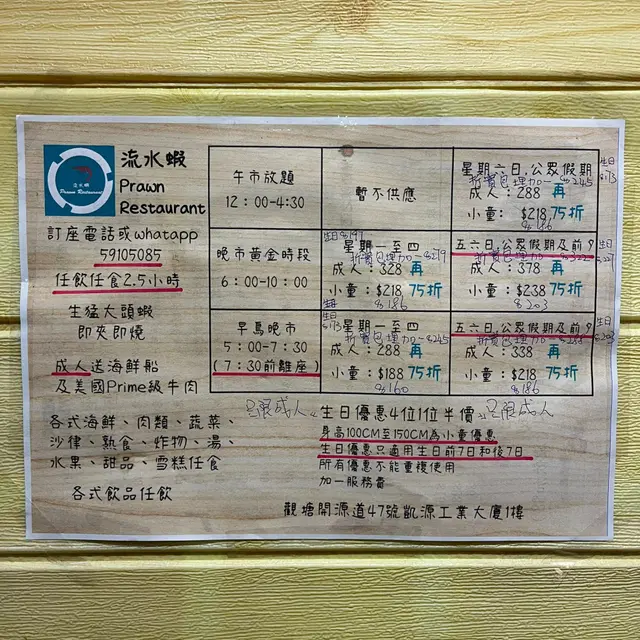 流水蝦
Prawn
Restaurant
流水蝦
Prawn Restaurant
訂座電話或whatapp
59105085
任飲任食2.5小時
生猛大頭蝦
即夾即燒
成人送海鮮船
及美國Prime級牛肉
各式海鮮、肉類、蔬菜、
沙律、熟食、炸物、湯、
水果、甜品、雪糕任食
各式飲品任飲
午市放題
12：00-4:30
暫不供應
星期六日,公眾假期
折實包埋加一 $245
成人：288 再
小童：$218 75折
生日
$173
$186
晚市黃金時段
6：00-10：00
生日$197
星期一至四
折實包埋加一 $279
成人：328 再
小童：$218 75折
$186
五六日,公眾假期及前夕
折實包埋加一
成人：378 再
小童：$238 75折
$203
生日
早鳥晚市
5：00-7:30
(7：30前離座)
生日
$173
星期一至四
折實包埋加一 $245
成人：288 再
小童：$188 75折
$160
五六日,公眾假期及前夕
折實包埋加一 $288
成人：338 再
小童：$218 75折
$186
生日
$203
只限成人 生日優惠4位1位半價 只限成人
身高100CM至150CM為小童優惠
生日優惠只適用生日前7日和後7日
所有優惠不能重複使用
加一服務費
觀塘開源道47號凱源工業大廈1樓